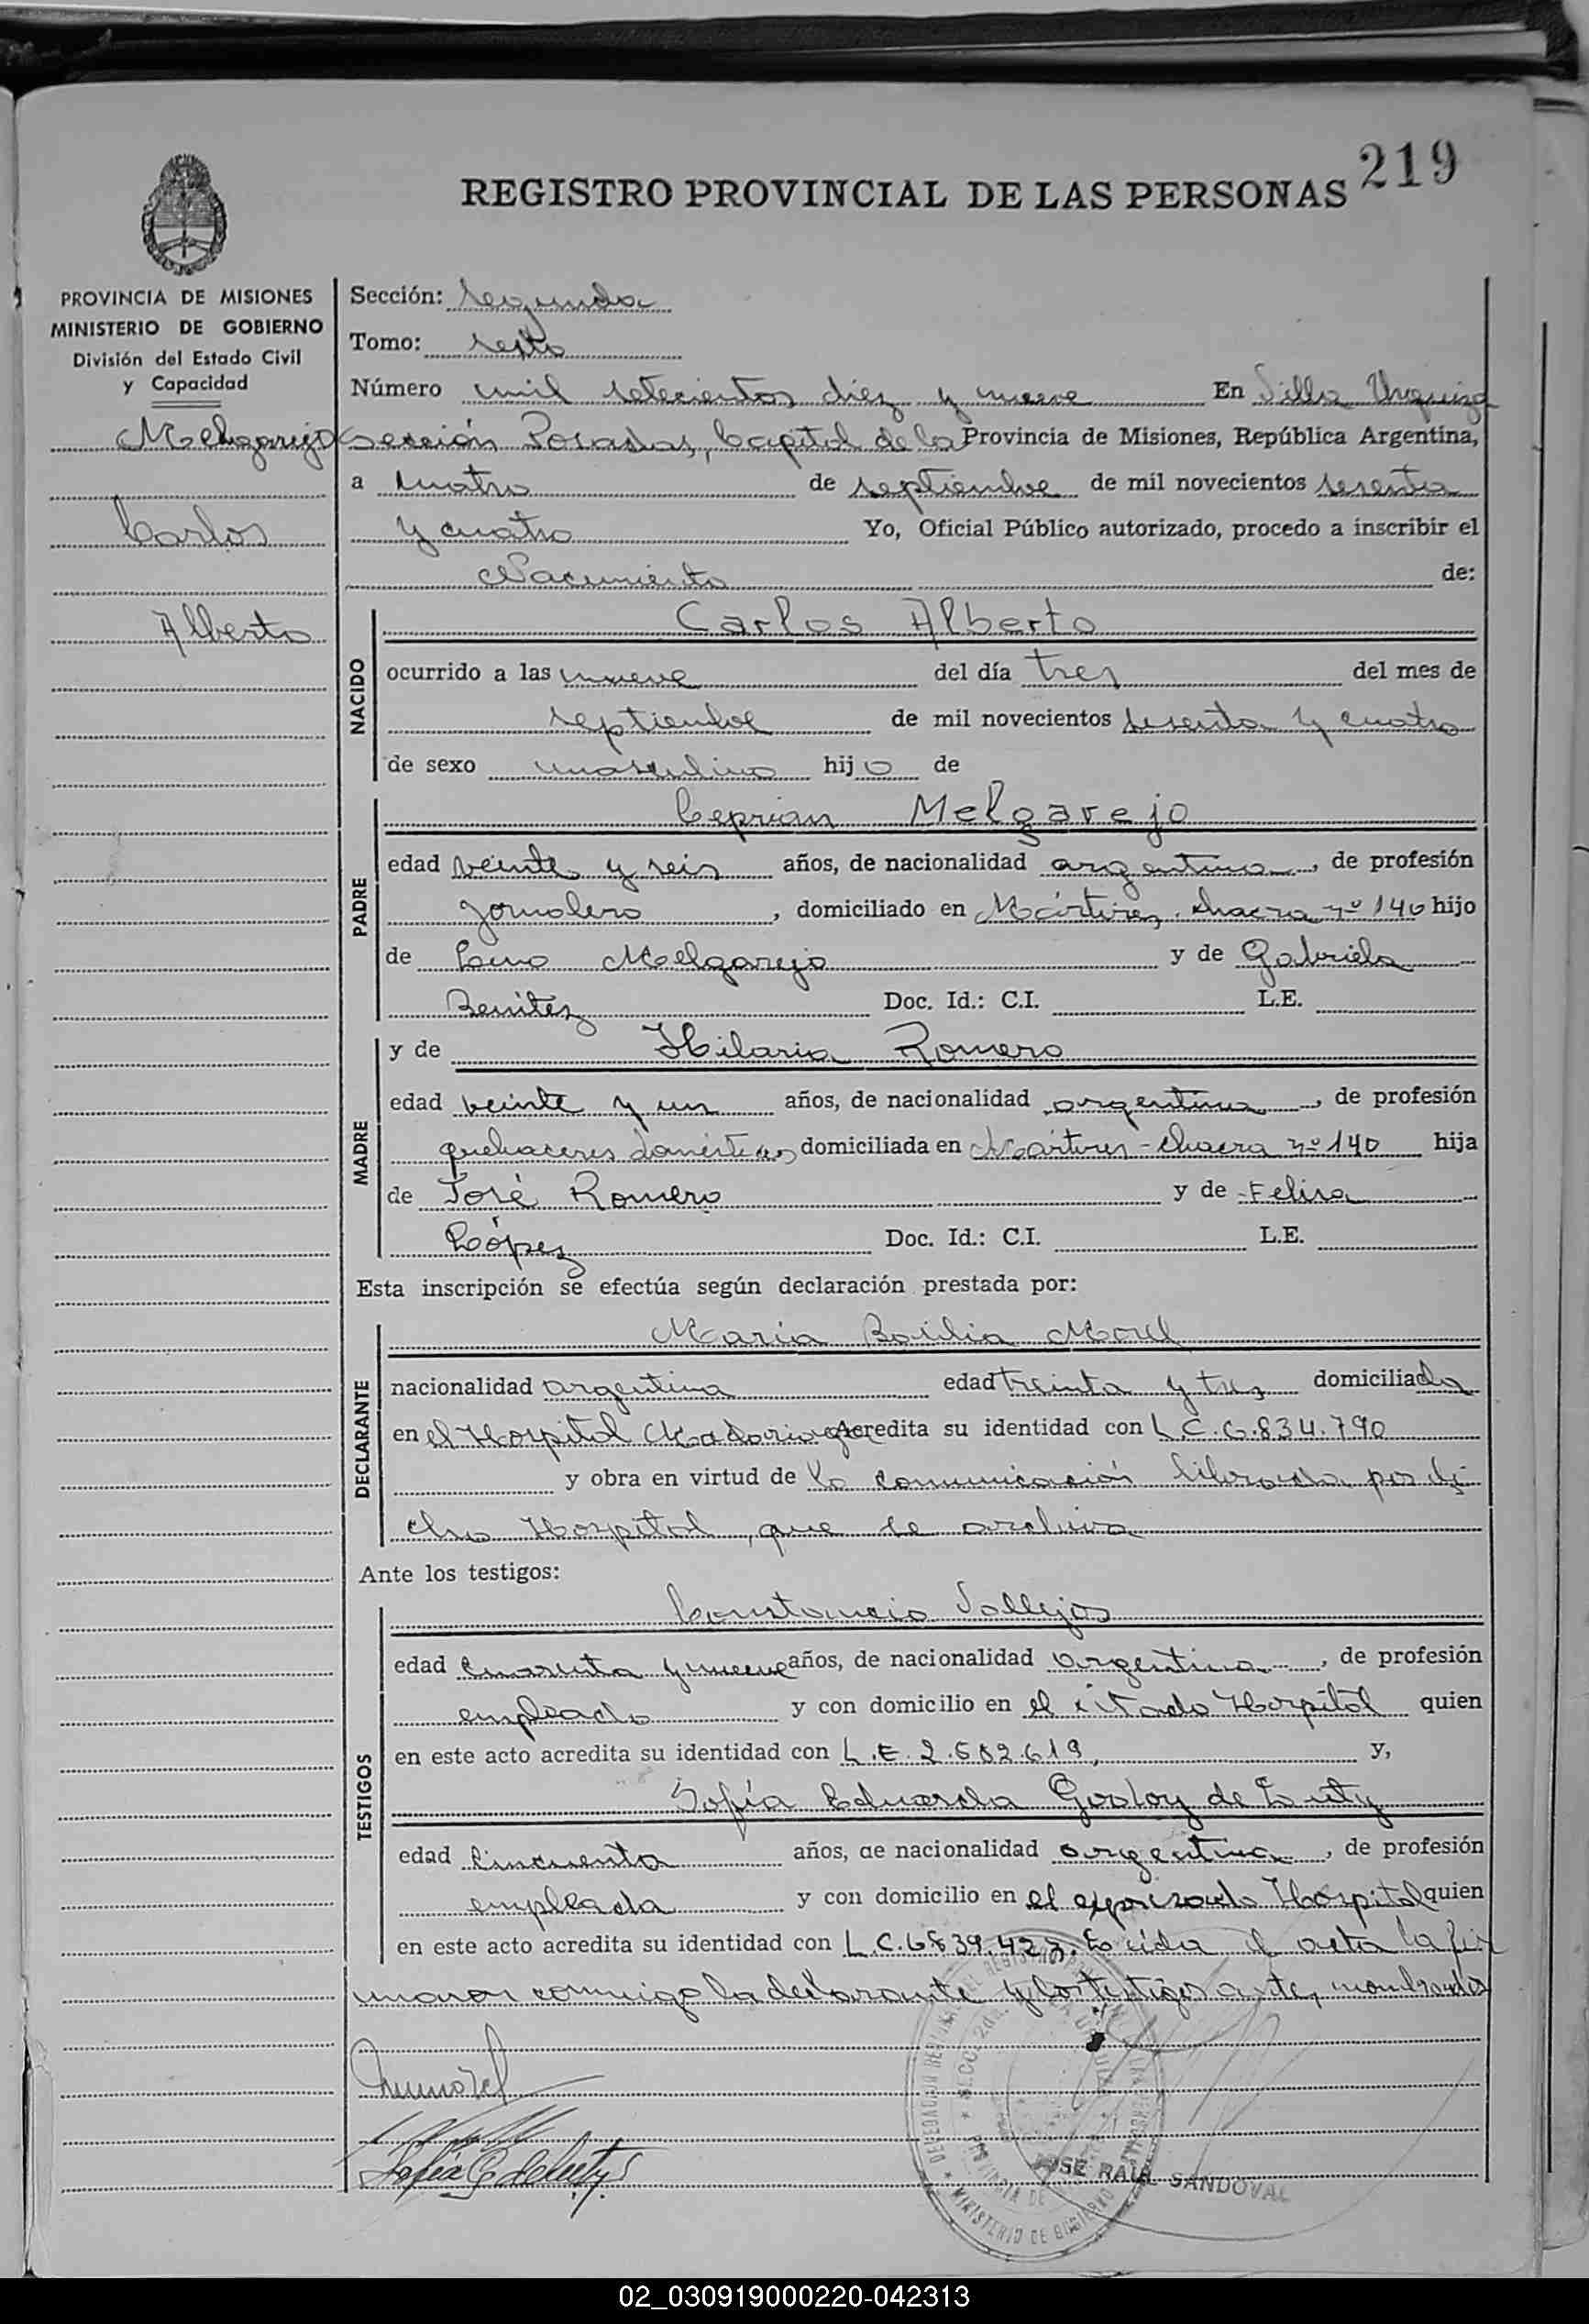 219
REGISTRO PROVINCIAL DE LAS PERSONAS
PROVINCIA DE MISIONES
MINISTERIO DE GOBIERNO
División del Estado Civil
y Capacidad
Melgarejo
Carlos
Alberto
Sección: Segunda
Tomo: sexto
Número mil setecientos diez y nueve En Villa Urquiza
Sección Posadas, Capital de la Provincia de Misiones, República Argentina,
a cuatro de septiembre de mil novecientos sesenta
y cuatro Yo, Oficial Público autorizado, procedo a inscribir el
Nacimiento de:
NACIDO
Carlos Alberto
ocurrido a las nueve del día tres del mes de
septiembre de mil novecientos sesenta y cuatro
de sexo masculino hijo de
PADRE
Ceprian Melgarejo
edad veinte y seis años, de nacionalidad argentina, de profesión
jornalero, domiciliado en Mártires, chacra nº 140 hijo
de Lino Melgarejo y de Gabriela
Benitez Doc. Id.: C.I. L.E.
MADRE
y de Hilaria Romero
edad veinte y un años, de nacionalidad argentina, de profesión
quehaceres domésticos domiciliada en Mártires - chacra nº 140 hija
de José Romero y de Felisa
López Doc. Id.: C.I. L.E.
Esta inscripción se efectúa según declaración prestada por:
DECLARANTE
María Morel
nacionalidad argentina edad treinta y tres domiciliada
en el Hospital Madariaga Acredita su identidad con L.C. 6.834.790
y obra en virtud de la comunicación librada por di-
cho Hospital, que se archiva
Ante los testigos:
TESTIGOS
Constancio Vallejos
edad cuarenta y nueve años, de nacionalidad argentina, de profesión
empleado y con domicilio en el citado Hospital quien
en este acto acredita su identidad con L.E. 2.582.619, y,
Sofía Eduarda Godoy de
edad cincuenta años, de nacionalidad argentina, de profesión
empleada y con domicilio en el expresado Hospital quien
en este acto acredita su identidad con L.C. 6.839.423. Leída el acta la fir
maron conmigo la declarante y los testigos ante, nombrados
JOSE RAUL SANDOVAL
MINISTERIO DE GOBIERNO
02_030919000220-042313